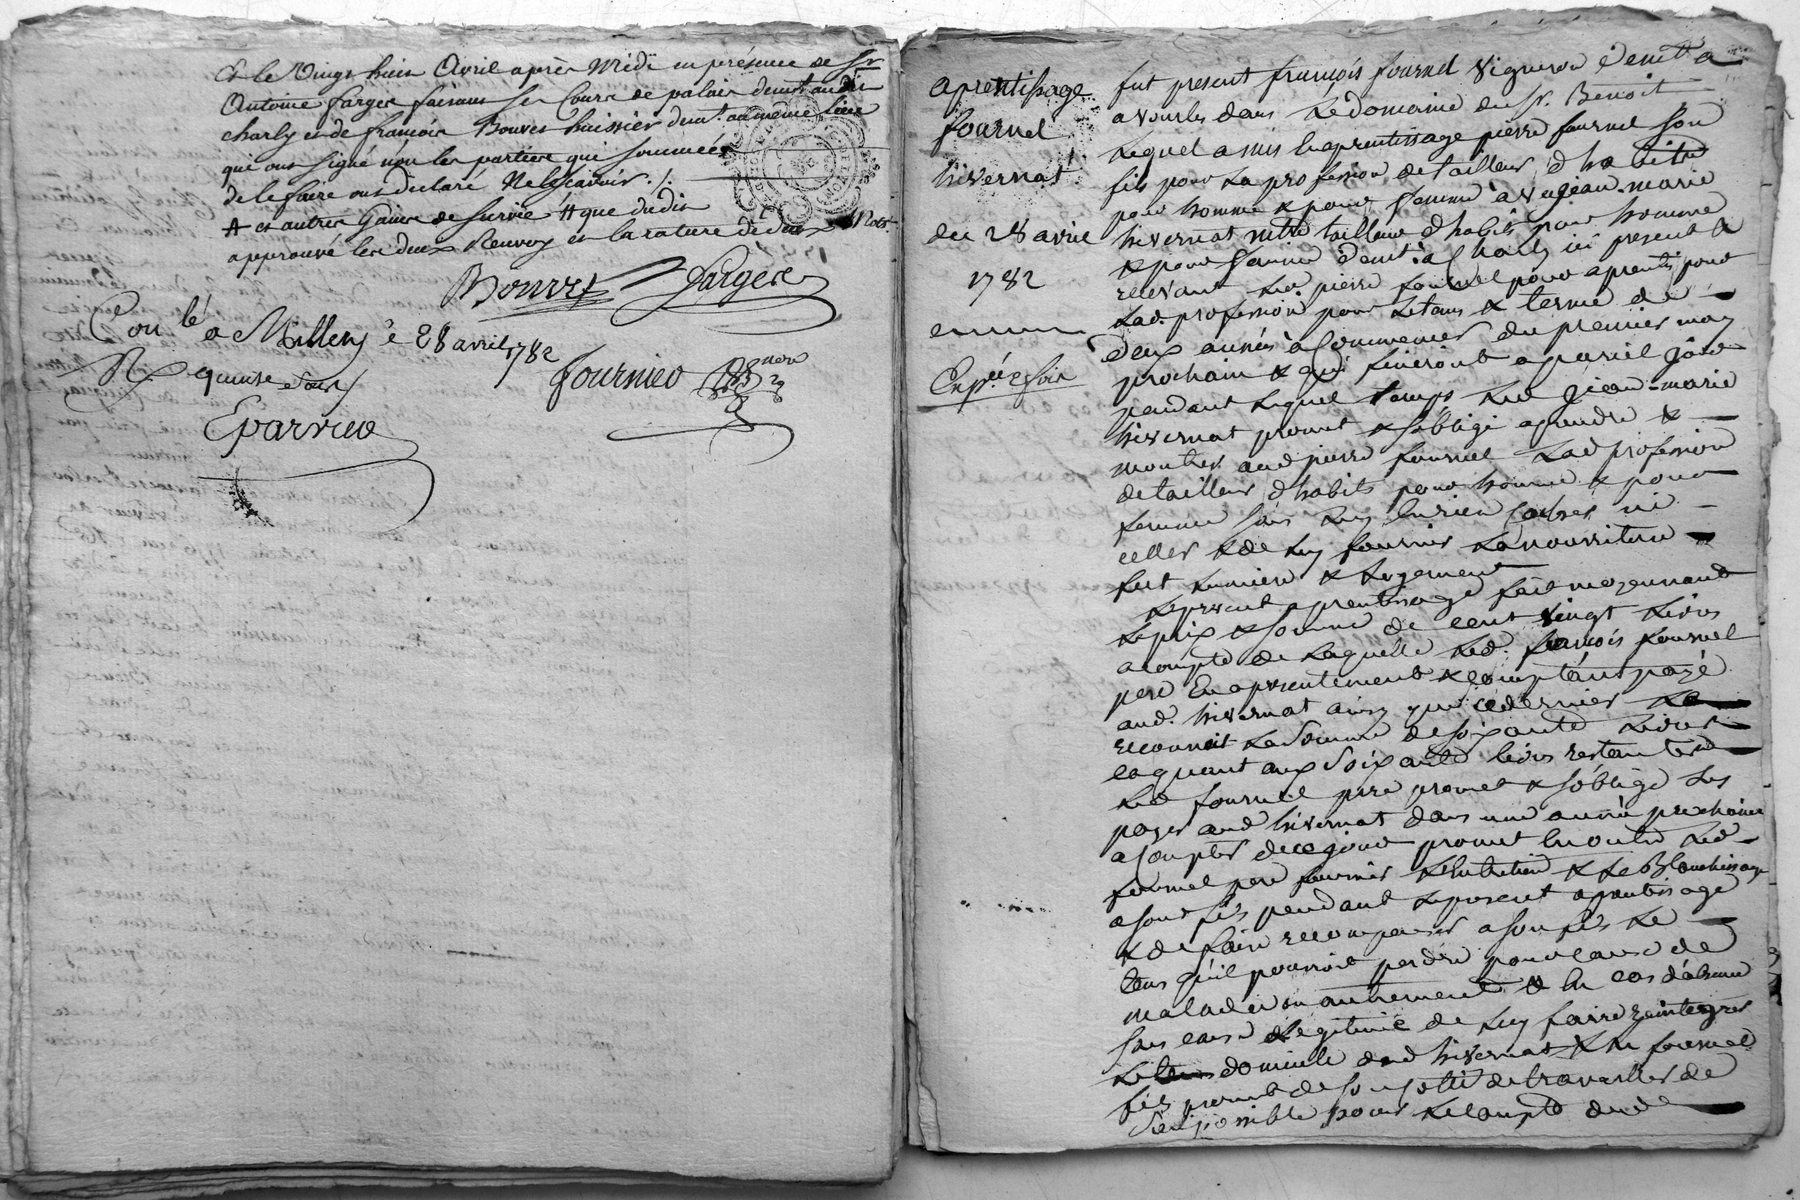 Et le Vingt huit Avril après Midi en présence de Sr
Antoine farger faisant ses Cours de palais demt audit
charly et de françois Bouvet huissier demt. au même lieu
qui ont signé non les parties qui sommées
de le faire ont declaré Ne le scavoir ./.
et autres Gains de survie # que dudit
approuvé les deux Renvoy et la rature de deux Mots
Bouvet farger
Con lé a Millery le 28 avril 1782
R quinze sols
fournier
Eparvier
aprentissage
fournel
hivernat
du 28 avril
1782
Expée 2 fois
fut present françois fournel Vigneron demt a
a vourles dans le domaine du Sr. Benoit
Lequel a mis En aprentissage pierre fournel son
fils pour La profession de tailleur d'habits
pour homme & pour femme à Sr jean-marie
hivernat mtre tailleur d'habits pour homme
& pour femme demt. à Charly ici present &
recevant Led pierre fournel pour aprentis pour
Lad. profession pour Letans & terme de
deux années à Commencer du premier may
prochain & qui finiront a pareil jour
pendant Lequel temps Led jean-marie
hivernat promet & s'oblige aprendre &
montrer aud pierre fournel Lad profession
de tailleur d'habits pour homme & pour
femme sans luy En rien Cacher ni
celler & de luy fournir La nourriture
lict Lumiere & Logement
Le present aprentissage fait moyennant
Le prix & somme de cent vingt Livres
acompte de Laquelle Led. françois fournel
pere En a presentement & comptant payé
aud. hivernat ainsy que ce dernier Le
reconnoit La Somme de soixante Livres
Et quant aux Soixante livres restantes
Led fournel pere promet & s'oblige Les
payer aud hivernat dans une année prochaine
a Compter de ce jour promet En outre Led
fournel pere fournir L'Entretien & Le Blanchissage
a sont fils pendant Le present aprentissage
& de faire recompenser a son fils Le
tems qu'il pourroit perdre pour cause de
maladie ou autrement & En cas d'absence
sans cause Legitime de luy faire reintegrer
Le domicile dud hivernat & Led fournel
fils promet de son coté de travailler de
Son possible pour Le Compte dud